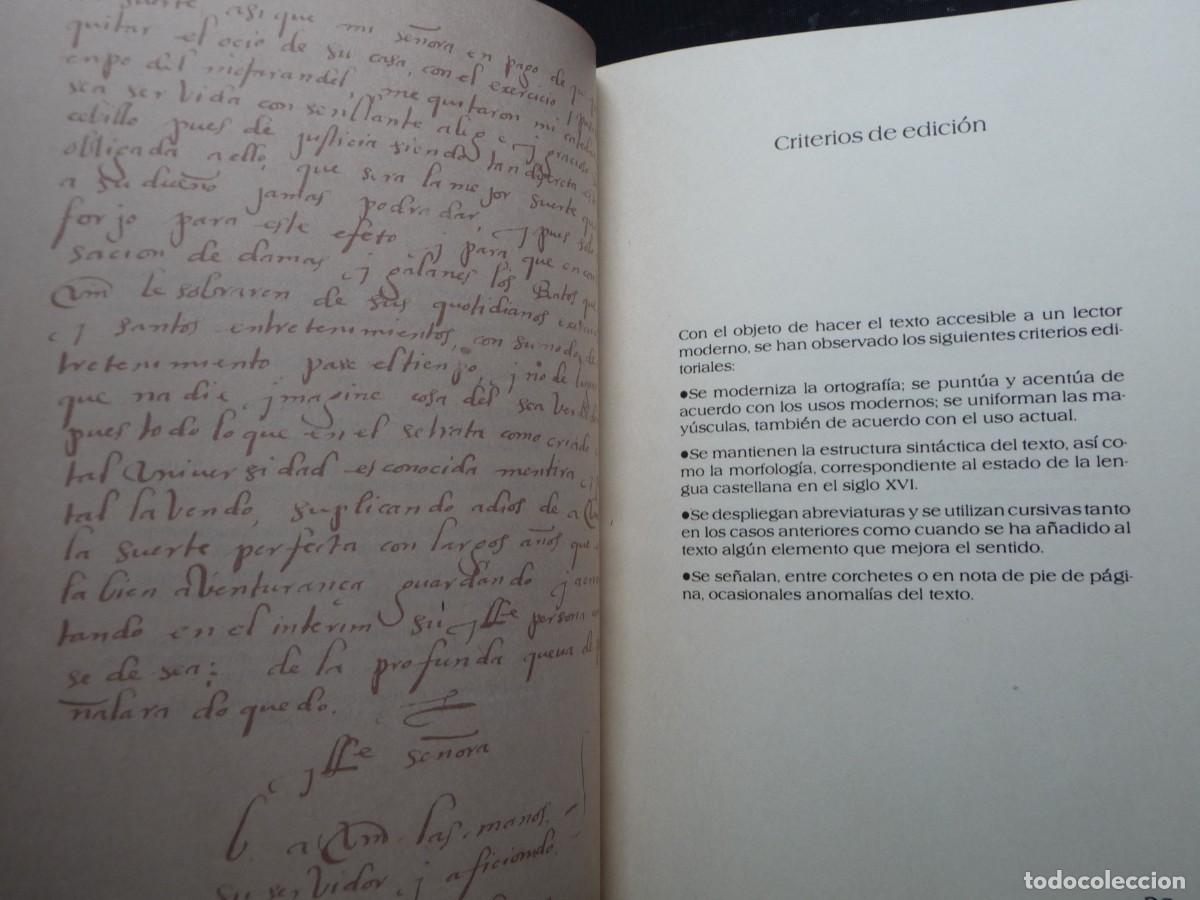 suerte asi que mi señora en pago de que
quitar el ocio de su casa, con el exercicio
enpo del nicfarandel, me quitaron mi
sea servida con senllante
cebillo pues de justicia siendo tan discreta
obligada a ello, que sera la mejor suerte que
a su dueño jamas podra dar, pues
forjo para este efeto para que en con
sacion de damas galanes los que
le sobraren de sus quotidianos
santos entretenimientos, con su modo de
tretenimiento pase el tienpo, no de
que nadie imagine cosa del sea
pues todo lo que en el se trata como
tal Universidad es conocida mentira
tal la vendo, suplicando a dios de a
la suerte perfecta con largos años que
la bien aVenturança guardando
tando en el interim su persona
se desea: de la profunda
ñalara do quedo.
señora
b. a las manos.
su servidor aficionado.
Criterios de edición
Con el objeto de hacer el texto accesible a un lector
moderno, se han observado los siguientes criterios edi-
toriales:
●Se moderniza la ortografía; se puntúa y acentúa de
acuerdo con los usos modernos; se uniforman las ma-
yúsculas, también de acuerdo con el uso actual.
●Se mantienen la estructura sintáctica del texto, así co-
mo la morfología, correspondiente al estado de la len-
gua castellana en el siglo XVI.
●Se despliegan abreviaturas y se utilizan cursivas tanto
en los casos anteriores como cuando se ha añadido al
texto algún elemento que mejora el sentido.
●Se señalan, entre corchetes o en nota de pie de pági-
na, ocasionales anomalías del texto.
todocoleccion